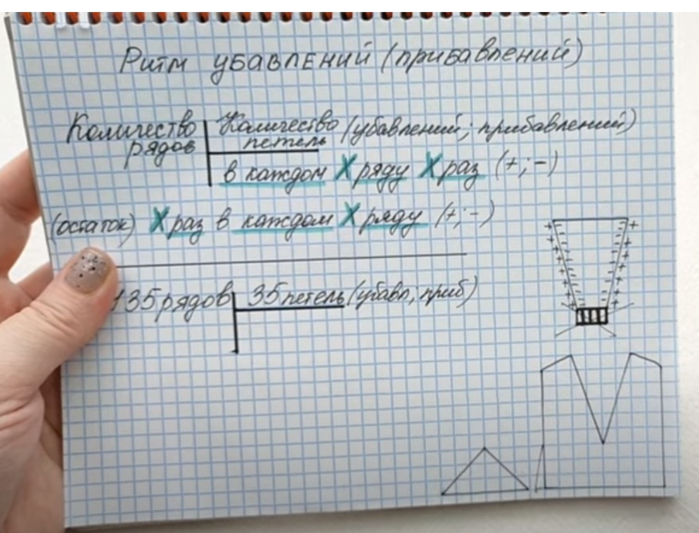 Ритм убавлений (прибавлений)
Количество рядов
Количество петель (убавлений; прибавлений)
в каждом X ряду X раз (+;-)
(остаток) X раз в каждом X ряду (+;-)
135 рядов 35 петель (убавл, приб)